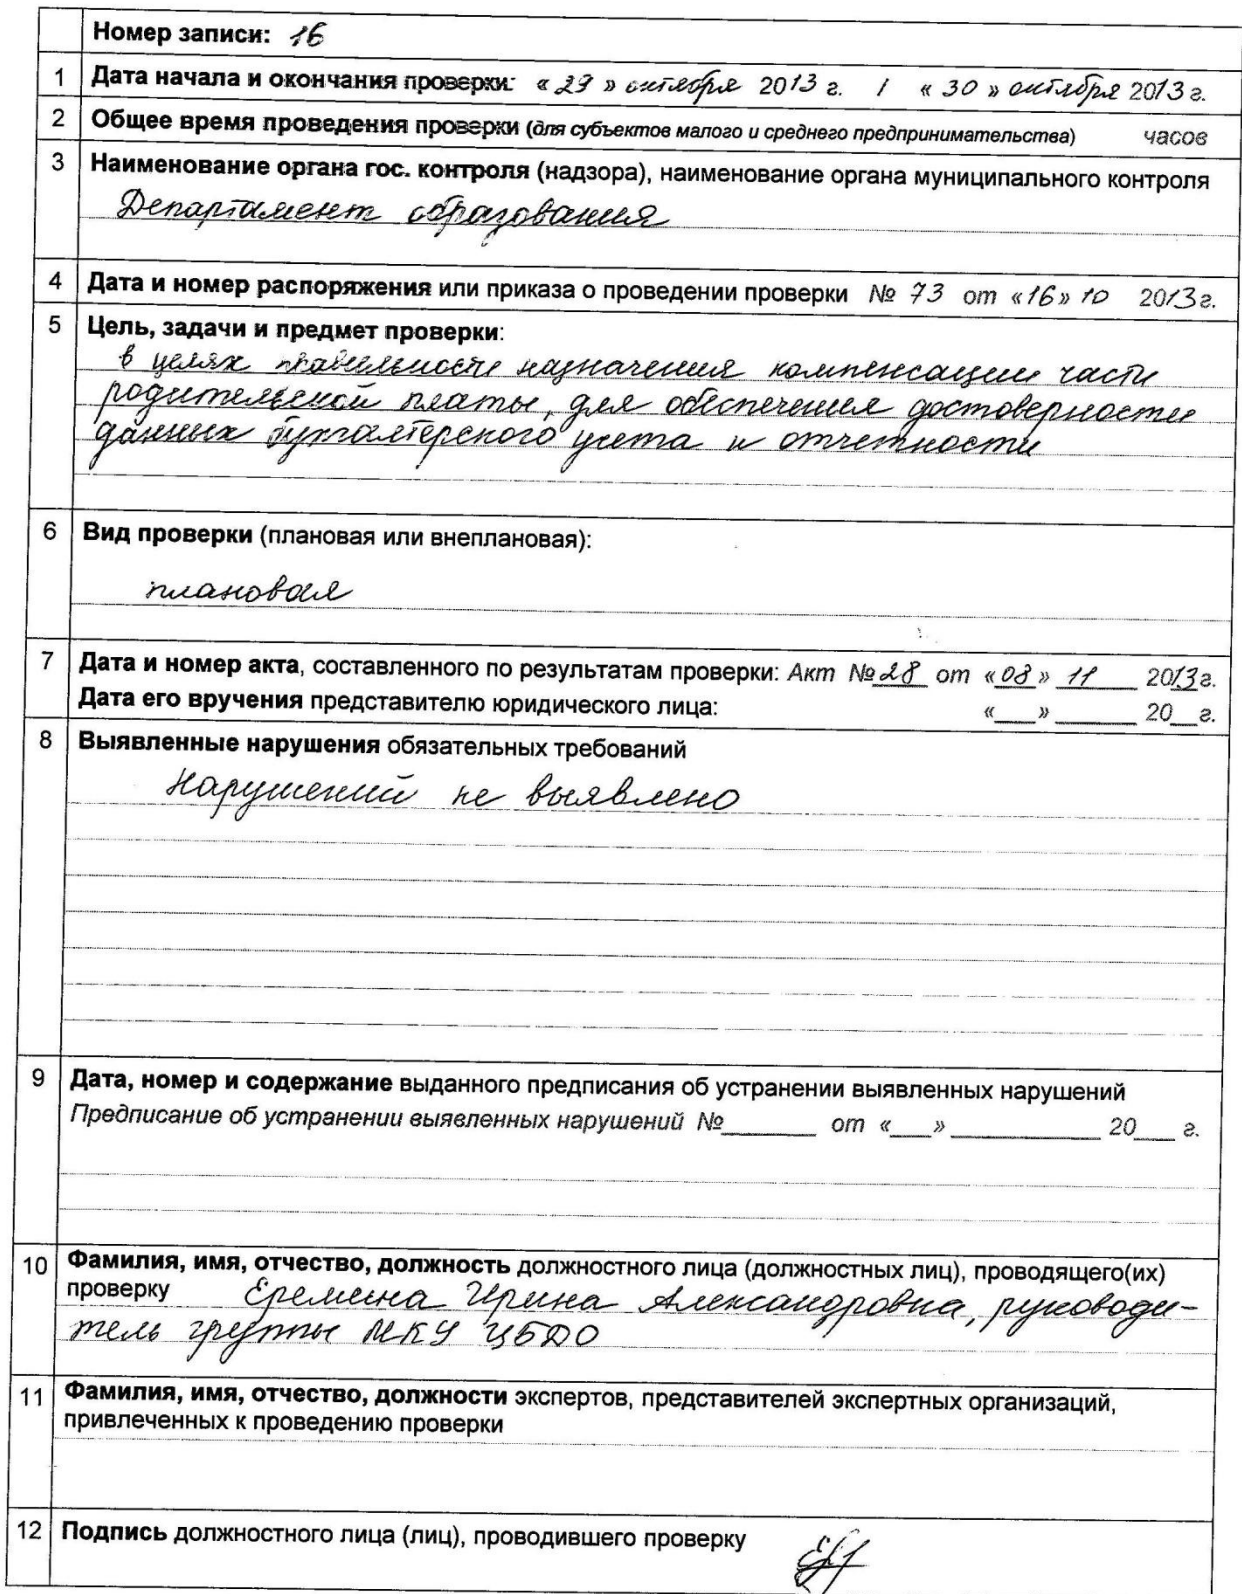 Номер записи: 16
1 Дата начала и окончания проверки: « 29 » октября 2013 г. / « 30 » октября 2013 г.
2 Общее время проведения проверки (для субъектов малого и среднего предпринимательства) часов
3 Наименование органа гос. контроля (надзора), наименование органа муниципального контроля
Департамент образования
4 Дата и номер распоряжения или приказа о проведении проверки № 73 от «16» 10 2013г.
5 Цель, задачи и предмет проверки:
в целях правильности назначения компенсации части
родительской платы, для обеспечения достоверности
данных бухгалтерского учета и отчетности
6 Вид проверки (плановая или внеплановая):
плановая
7 Дата и номер акта, составленного по результатам проверки: Акт № 28 от «08» 11 2013г.
Дата его вручения представителю юридического лица: «___» ______ 20__г.
8 Выявленные нарушения обязательных требований
Нарушений не выявлено
9 Дата, номер и содержание выданного предписания об устранении выявленных нарушений
Предписание об устранении выявленных нарушений №_______ от «___» ___________ 20___ г.
10 Фамилия, имя, отчество, должность должностного лица (должностных лиц), проводящего(их)
проверку Еремина Ирина Александровна, руководи-
тель группы МКУ ЦБДО
11 Фамилия, имя, отчество, должности экспертов, представителей экспертных организаций,
привлеченных к проведению проверки
12 Подпись должностного лица (лиц), проводившего проверку